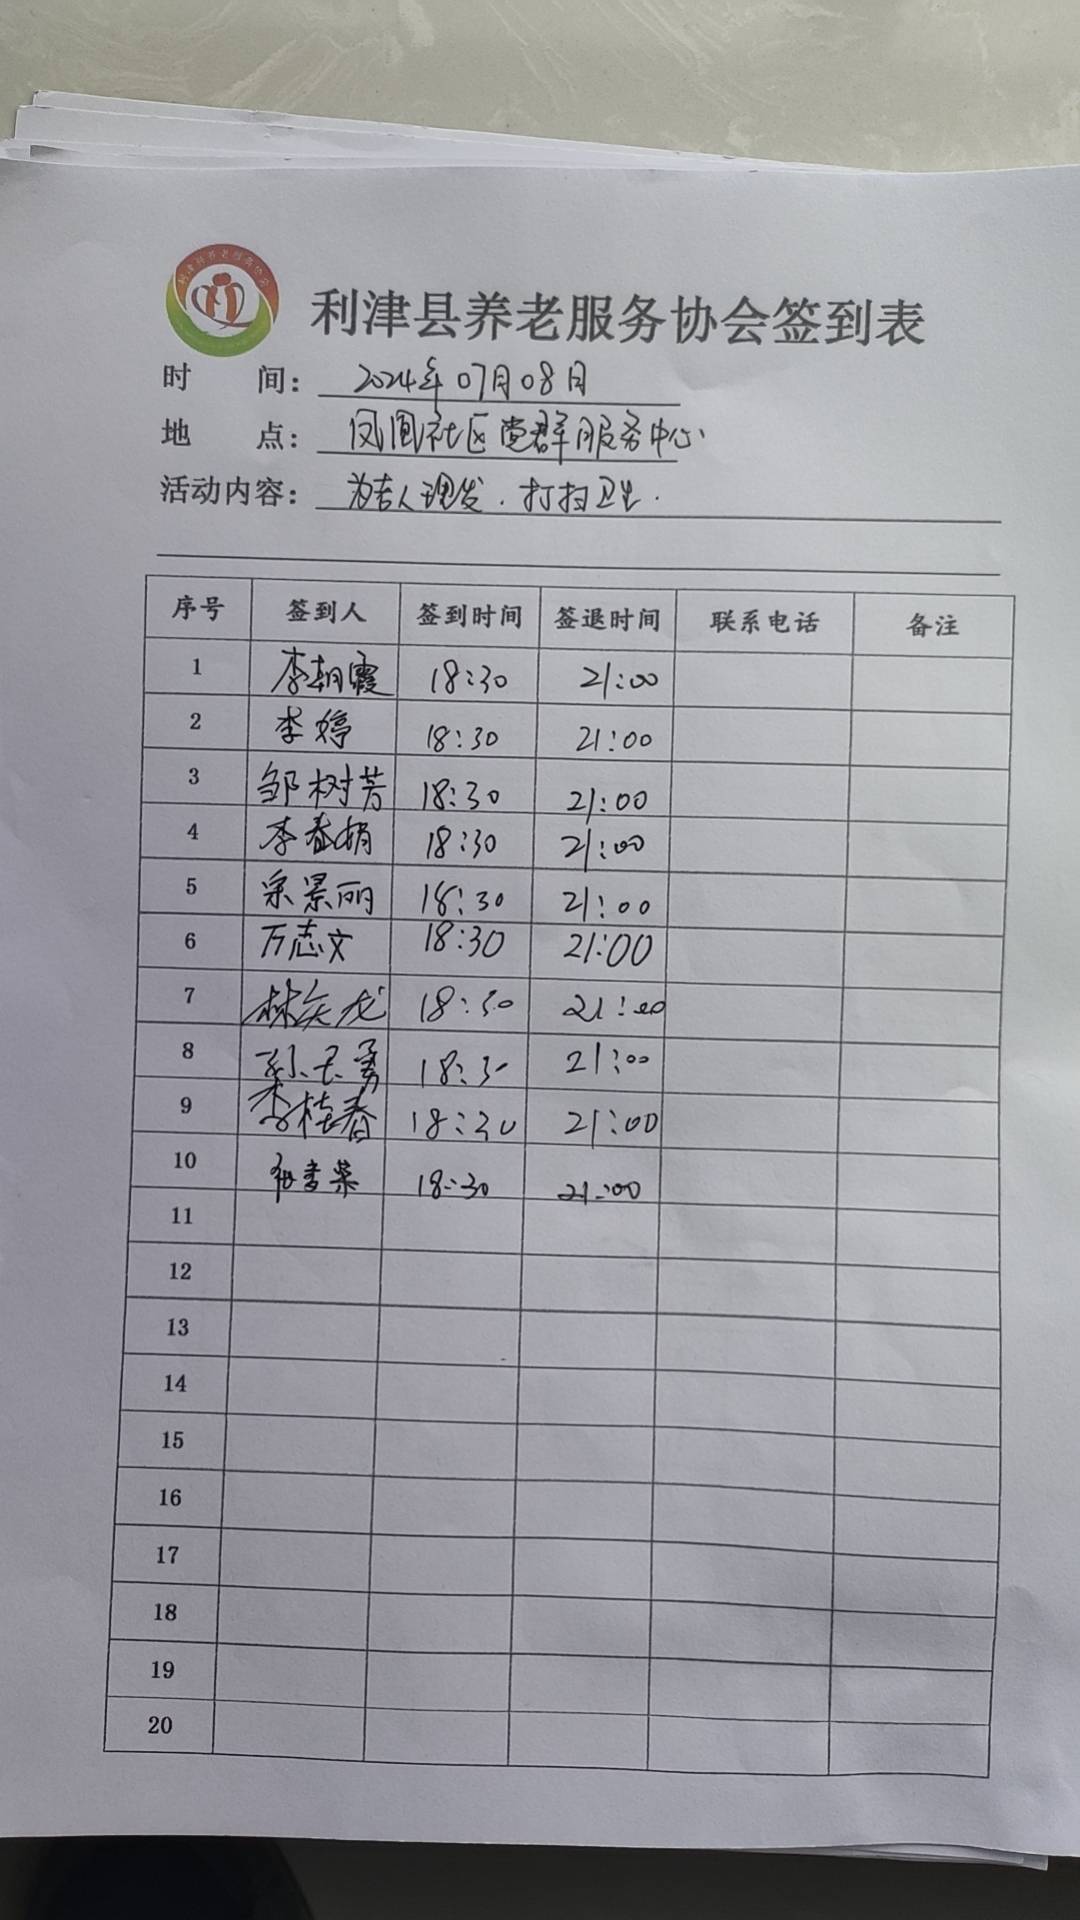 利津县养老服务协会签到表
时 间: 2024年07月08日
地 点: 凤凰社区党群服务中心
活动内容: 为老人理发.打扫卫生.
序号 签到人 签到时间 签退时间 联系电话 备注
1 李朝霞 18:30 21:00
2 李婷 18:30 21:00
3 邹树芳 18:30 21:00
4 李春娟 18:30 21:00
5 宋景丽 18:30 21:00
6 万志文 18:30 21:00
7 林庆龙 18:30 21:00
8 18:30 21:00
9 李桂春 18:30 21:00
10 18:30 21:00
11
12
13
14
15
16
17
18
19
20